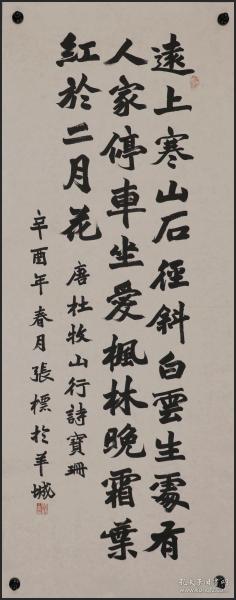 遠上寒山石徑斜白雲生處有
人家停車坐愛楓林晚霜葉
紅於二月花
唐杜牧山行詩寶珊
辛酉年春月張標於羊城